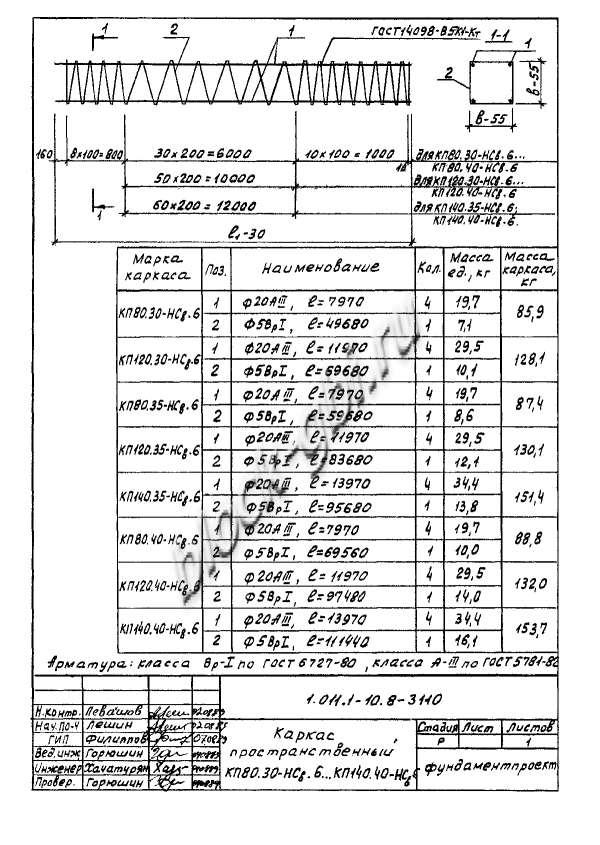 1 2 1 ГОСТ 14098-В5К1-Кт 1-1 1
2
в-55
в-55
160 8×100=800 30×200=6000 10×100=1000 для КП80.30-НСв.6...
КП80.40-НСв.6
50×200=10000 для КП120.30-НСв.6...
КП120.40-НСв.6
60×200=12000 для КП140.35-НСв.6;
1 КП140.40-НСв.6.
ℓ₁-30
Марка каркаса Поз. Наименование Кол. Масса ед., кг Масса каркаса, кг
КП80.30-НСв.6 1 Ф20АIII, ℓ=7970 4 19,7 85,9
2 Ф5ВрI, ℓ=49680 1 7,1
КП120.30-НСв.6 1 Ф20АIII, ℓ=11970 4 29,5 128,1
2 Ф5ВрI, ℓ=69680 1 10,1
КП80.35-НСв.6 1 Ф20АIII, ℓ=7970 4 19,7 87,4
2 Ф5ВрI, ℓ=59680 1 8,6
КП120.35-НСв.6 1 Ф20АIII, ℓ=11970 4 29,5 130,1
2 Ф5ВрI, ℓ=83680 1 12,1
КП140.35-НСв.6 1 Ф20АIII, ℓ=13970 4 34,4 151,4
2 Ф5ВрI, ℓ=95680 1 13,8
КП80.40-НСв.6 1 Ф20АIII, ℓ=7970 4 19,7 88,8
2 Ф5ВрI, ℓ=69560 1 10,0
КП120.40-НСв.6 1 Ф20АIII, ℓ=11970 4 29,5 132,0
2 Ф5ВрI, ℓ=97480 1 14,0
КП140.40-НСв.6 1 Ф20АIII, ℓ=13970 4 34,4 153,7
2 Ф5ВрI, ℓ=111440 1 16,1
Арматура: класса Вр-I по ГОСТ 6727-80, класса А-III по ГОСТ 5781-82
1.011.1-10.8-3110
Н.контр. Левашов
Нач.ПО-4 Лешин
ГИП Филиппов
Вед.инж Горюшин
Инженер Хачатурян
Провер. Горюшин
Каркас
пространственный
КП80.30-НСв.6...КП140.40-НСв.6
Стадия Лист Листов
Р 1
Фундаментпроект